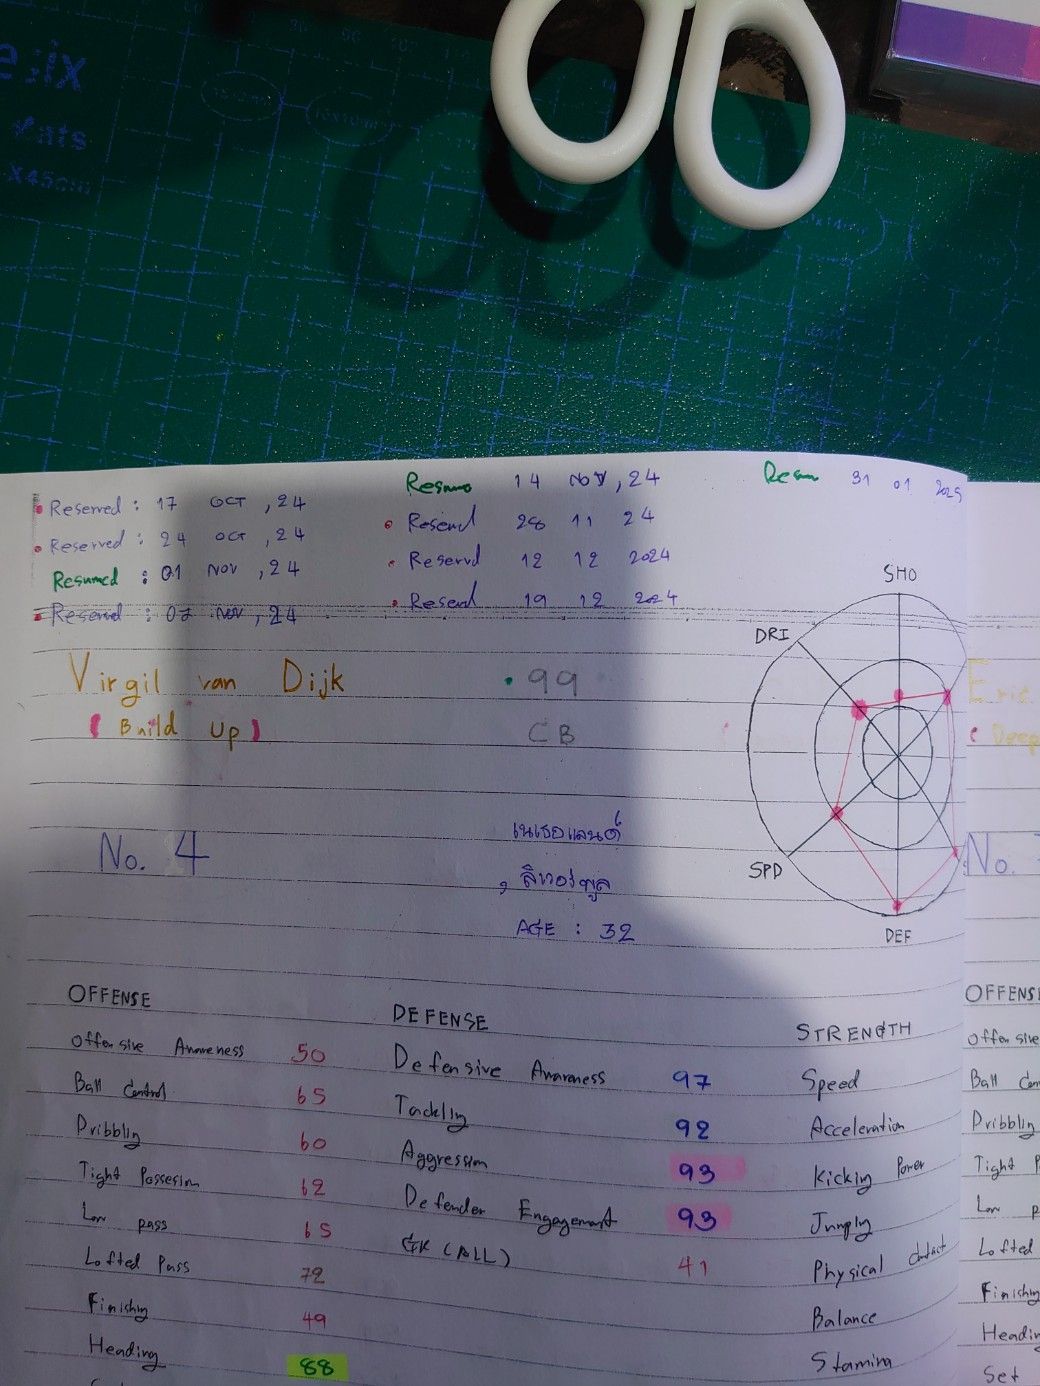 • Reserved : 17 OCT , 24
• Reserved : 24 OCT , 24
Resumed : 01 NOV , 24
• Reserved : 07 NOV , 24
Resumo 14 NOV , 24
• Reserved 28 11 24
• Reservd 12 12 2024
• Reserd 19 12 2024
Resm 31 01 2025
Virgil van Dijk • 99
( Build Up ) CB
No. 4
เนเธอแลนด์
, ลิเวอร์พูล
AGE : 32
SHO
DRI
SPD
DEF
OFFENSE
Offensive Awareness 50
Ball Control 65
Dribbling 60
Tight Possesion 62
Low pass 65
Lofted Pass 72
Finishing 49
Heading 88
DEFENSE
Defensive Awareness 97
Tackling 92
Aggression 93
Defender Engagement 93
GK (ALL) 41
STRENGTH
Speed
Acceleration
Kicking Power
Jumping
Physical Contact
Balance
Stamina
Eric
( Deep
No.
OFFENS
Offensive
Ball Con
Dribbling
Tight P
Low p
Lofted
Finishing
Heading
Set